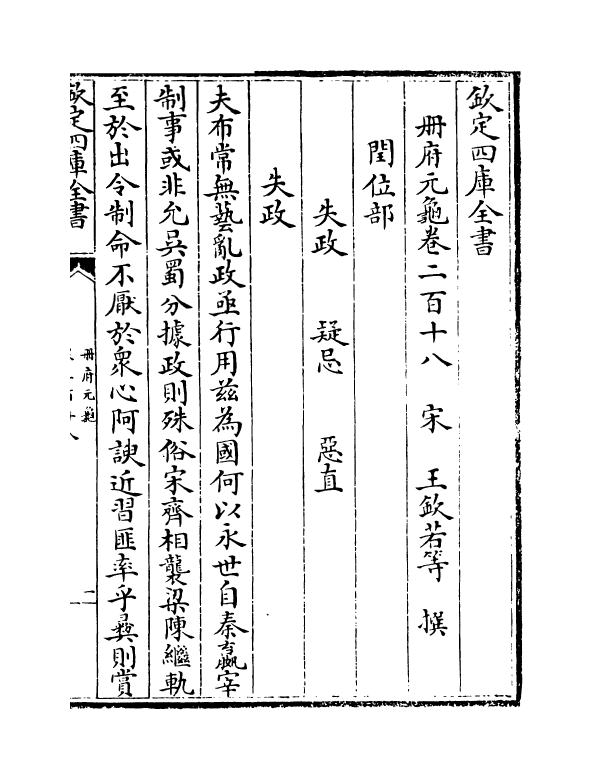 欽定四庫全書
冊府元龜卷二百十八 宋 王欽若等 撰
閏位部
失政 疑忌 惡直
失政
夫布常無藝亂政亟行用兹為國何以永世自秦嬴宰
制事或非允吳蜀分據政則殊俗宋齊相襲梁陳繼軌
至於出令制命不厭於衆心阿諛近習匪率乎彞則賞
欽定四庫全書
冊府元龜
一